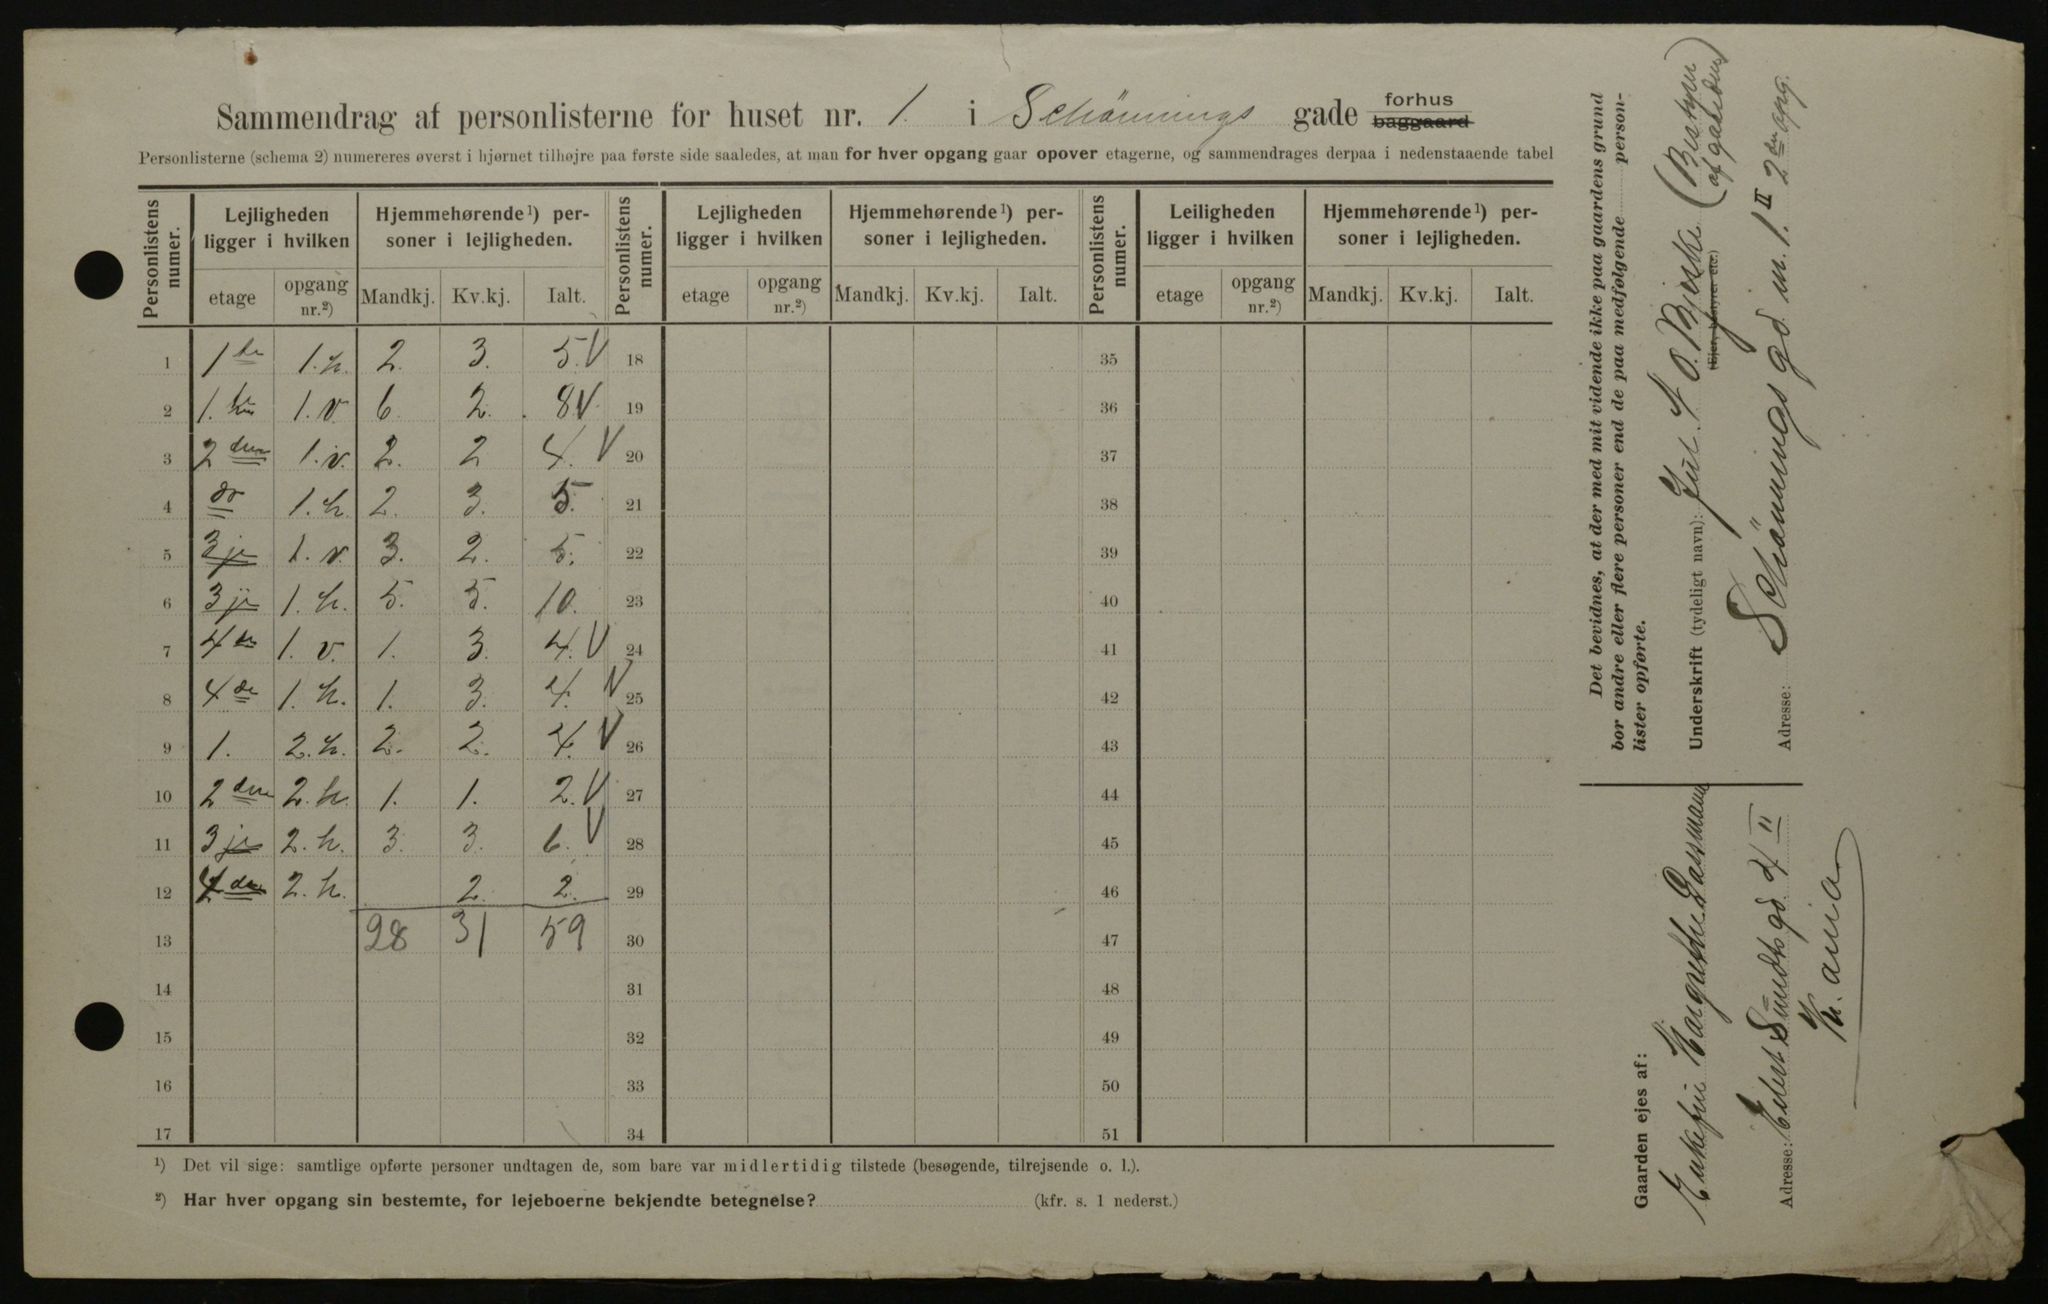 Sammendrag af personlisterne for huset nr. 1. i Schönnings gade forhus baggaard
Personlisterne (schema 2) numereres øverst i hjørnet tilhøjre paa første side saaledes, at man for hver opgang gaar opover etagerne, og sammendrages derpaa i nedenstaaende tabel
Personlistens numer. Lejligheden ligger i hvilken Hjemmehørende¹) personer i lejligheden. Personlistens numer. Lejligheden ligger i hvilken Hjemmehørende¹) personer i lejligheden. Personlistens numer. Leiligheden ligger i hvilken Hjemmehørende¹) personer i lejligheden.
etage opgang nr.²) Mandkj. Kv.kj. Ialt. etage opgang nr.²) Mandkj. Kv.kj. Ialt. etage opgang nr.²) Mandkj. Kv.kj. Ialt.
1 1ste 1. h. 2. 3. 5. V 18 35
2 1.ste 1. v. 6. 2. 8 V 19 36
3 2den 1. v. 2. 2 4. V 20 37
4 do 1. h. 2. 3. 5. 21 38
5 3je 1. v. 3. 2. 5. 22 39
6 3je 1. h. 5. 5. 10. 23 40
7 4de 1. v. 1. 3. 4. V 24 41
8 4de 1. h. 1. 3. 4. V 25 42
9 1. 2. h. 2. 2. 4. V 26 43
10 2den 2. h. 1. 1. 2. V 27 44
11 3je 2. h. 3. 3. 6. V 28 45
12 4de 2. h. 2. 2. 29 46
13 28 31 59 30 47
14 31 48
15 32 49
16 33 50
17 34 51
¹) Det vil sige: samtlige opførte personer undtagen de, som bare var midlertidig tilstede (besøgende, tilrejsende o. l.).
²) Har hver opgang sin bestemte, for lejeboerne bekjendte betegnelse? (kfr. s. 1 nederst.)
Det bevidnes, at der med mit vidende ikke paa gaardens grund
bor andre eller flere personer end de paa medfølgende person-
lister opførte.
Underskrift (tydeligt navn): Jul. O. Bjerke (Bestyrer af gaarden)
(Ejer, bestyrer etc.)
Adresse: Schönnings gd n. 1 II 2den opg.
Gaarden ejes af:
Enkefru Margrethe Gassmann
Adresse: Eilert Sundts gd 4 II